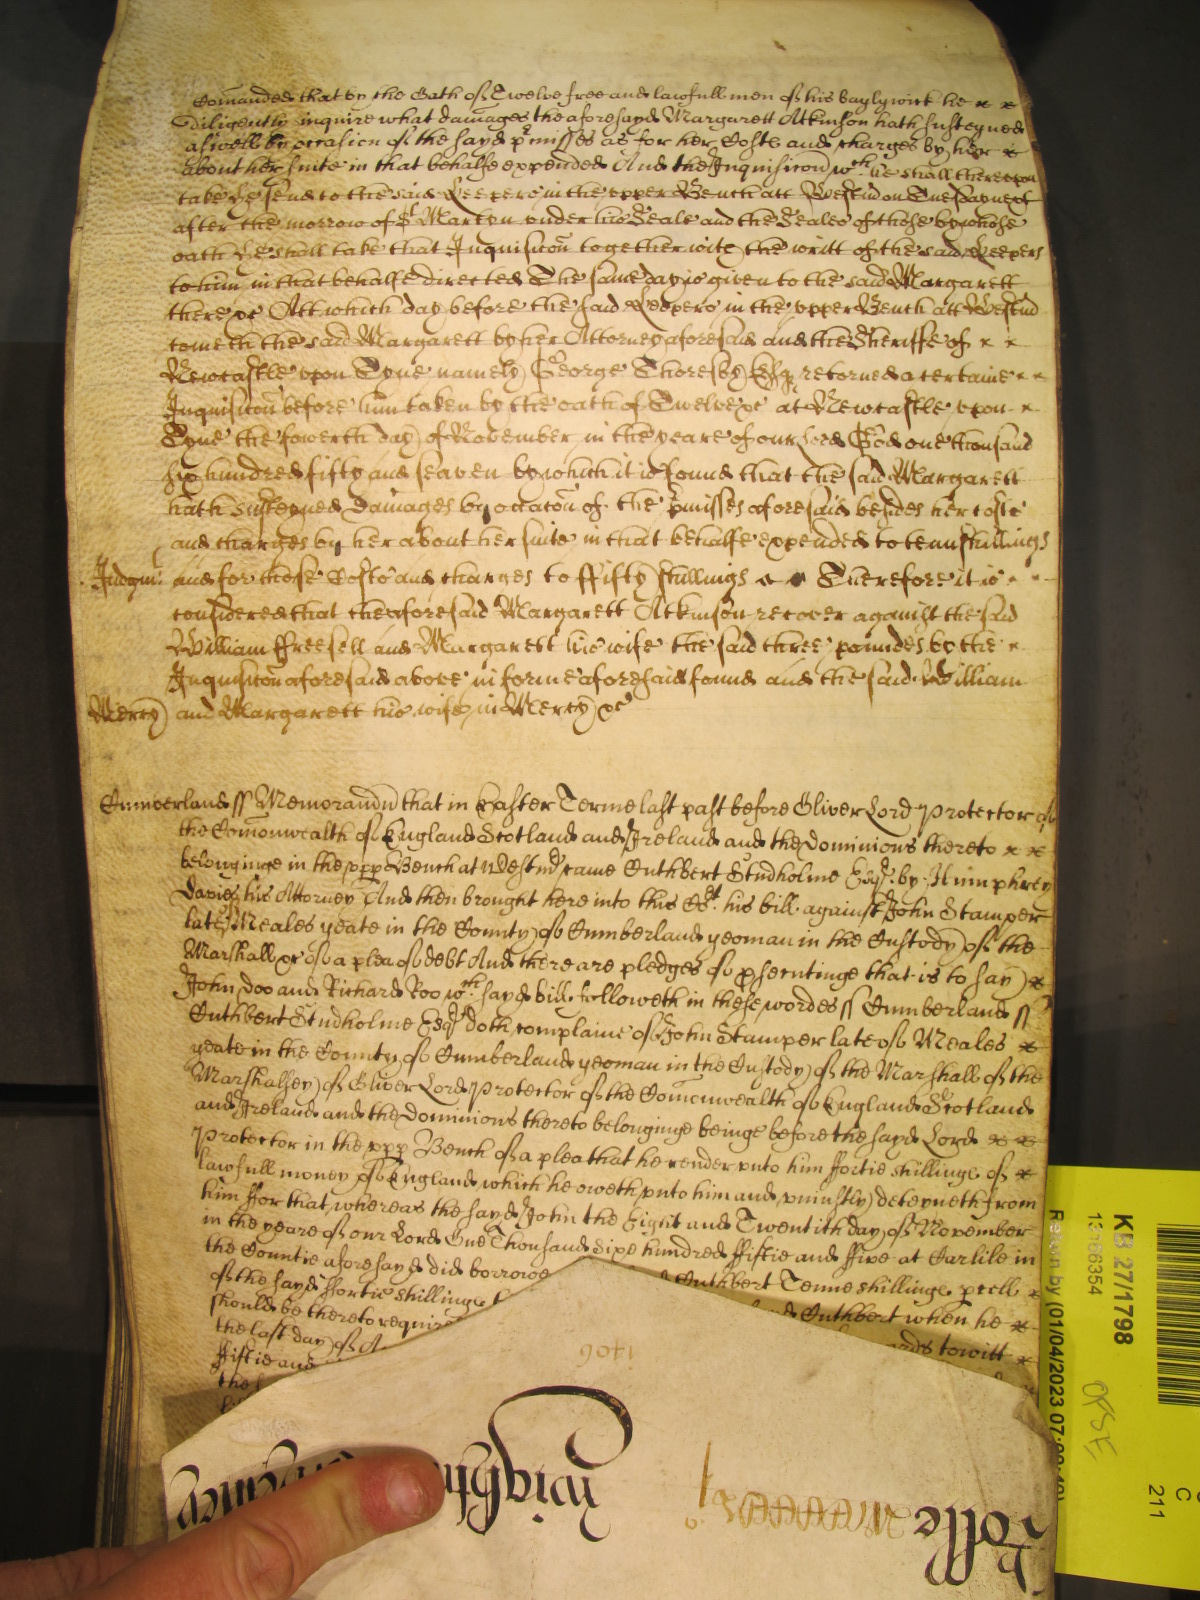 Comanded that by the Oath of Twelve free and lawfull men of his baylywick he x x
diligently inquire what damages the aforesayd Margarett Atkinson hath susteyned
aswell by occasion of the sayd pmisses as for her Costs and charges by her x
about her suite in that behalfe expended And the Inquisicon wch he shall thereupon
take he send to the said Keepers in the upper Bench att Westm on Tuesday next
after the morrow of St Martyn under his Seale and the Seales of those by whose
oath he shall take that Inquisicon together with the writt of the said Keepers
to him in that behalfe directed The same day is given to the said Margarett
there &c Att which day before the said Keepers in the upper Bench att Westm
cometh the said Margarett by her Attorney aforesaid and the Sheriffe of x x
Newcastle upon Tyne namely George Thoresby Esq retorned a certaine x x
Inquisicon before him taken by the oath of Twelve &c at Newcastle upon x
Tyne the fowerth day of November in the yeare of our Lord God one thousand
six hundred fifty and seaven by which it is found that the said Margarett
hath susteyned damages by occacon of the pmisses aforesaid besides her costs
and charges by her about her suite in that behalfe expended to tenn shillings
Judgmt and for those Costs and charges to ffifty shillings x x Therefore it is x x
considered that the aforesaid Margarett Atkinson recover against the said
William ffreesell and Margarett his wife the said three poundes by the x
Inquisicon aforesaid above in forme aforesaid found and the said William
Mercy and Margarett his wife in Mercy &c
Cumberland ss Memorandu that in Easter Terme last past before Oliver Lord Protector of
the Comonwealth of England Scotland and Ireland and the Dominions thereto x x
belonginge in the upp Bench at Westm came Cuthbert Studholme Esqr by Humphrey
Davies his Attorney And then brought here into this Cot his bill against John Stamper
late Meales yeate in the County of Cumberland yeoman in the Custody of the
Marshall &c of a plea of debt And there are pledges of psecutinge that is to say x
John doo and Richard Roo wch sayd bill followeth in these wordes ss Cumberland ss
Cuthbert Studholme Esqr doth complaine of John Stamper late of Meales x
yeate in the County of Cumberland yeoman in the Custody of the Marshall of the
Marshallsey of Oliver Lord Protector of the Comonwealth of England Scotland
and Ireland and the Dominions thereto belonginge beinge before the sayd Lord x x
Protector in the upp Bench of a plea that he render unto him ffortie shillings of x
lawfull money of England which he oweth unto him and uniustly deteyneth from
him ffor that whereas the sayd John the Eight and Twentith day of November
in the yeare of our Lord One Thousand sixe hundred ffiftie and ffive at Carlile in
the Countie aforesayd did borrowe Cuthbert Tenne shillings pcell x
of the sayd ffortie shillings Cuthbert when he x
should be thereto required towitt x
the last day of
ffiftie and
the
1406
Rolle
Wightwicke
KB 27/1798
13166354
Return by (01/04/2023 07:00:49)
OPSE
C
211